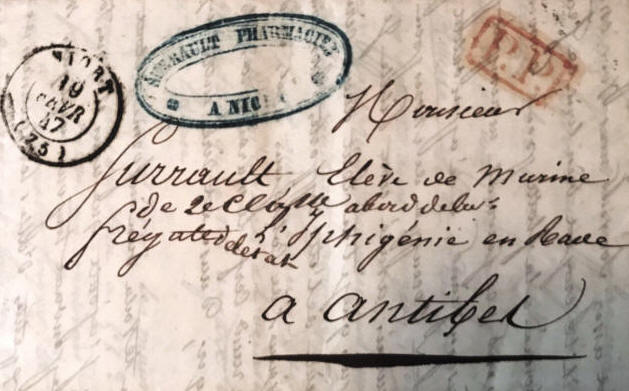 NIORT
19
FEVR
47
(75)
SURRAULT PHARMACIEN
A NIO
P.P.
Monsieur
Surrault Elève de Marine
de 2e Classe abord de la
frégate d'état l'Iphigénie en Rade
a antibes